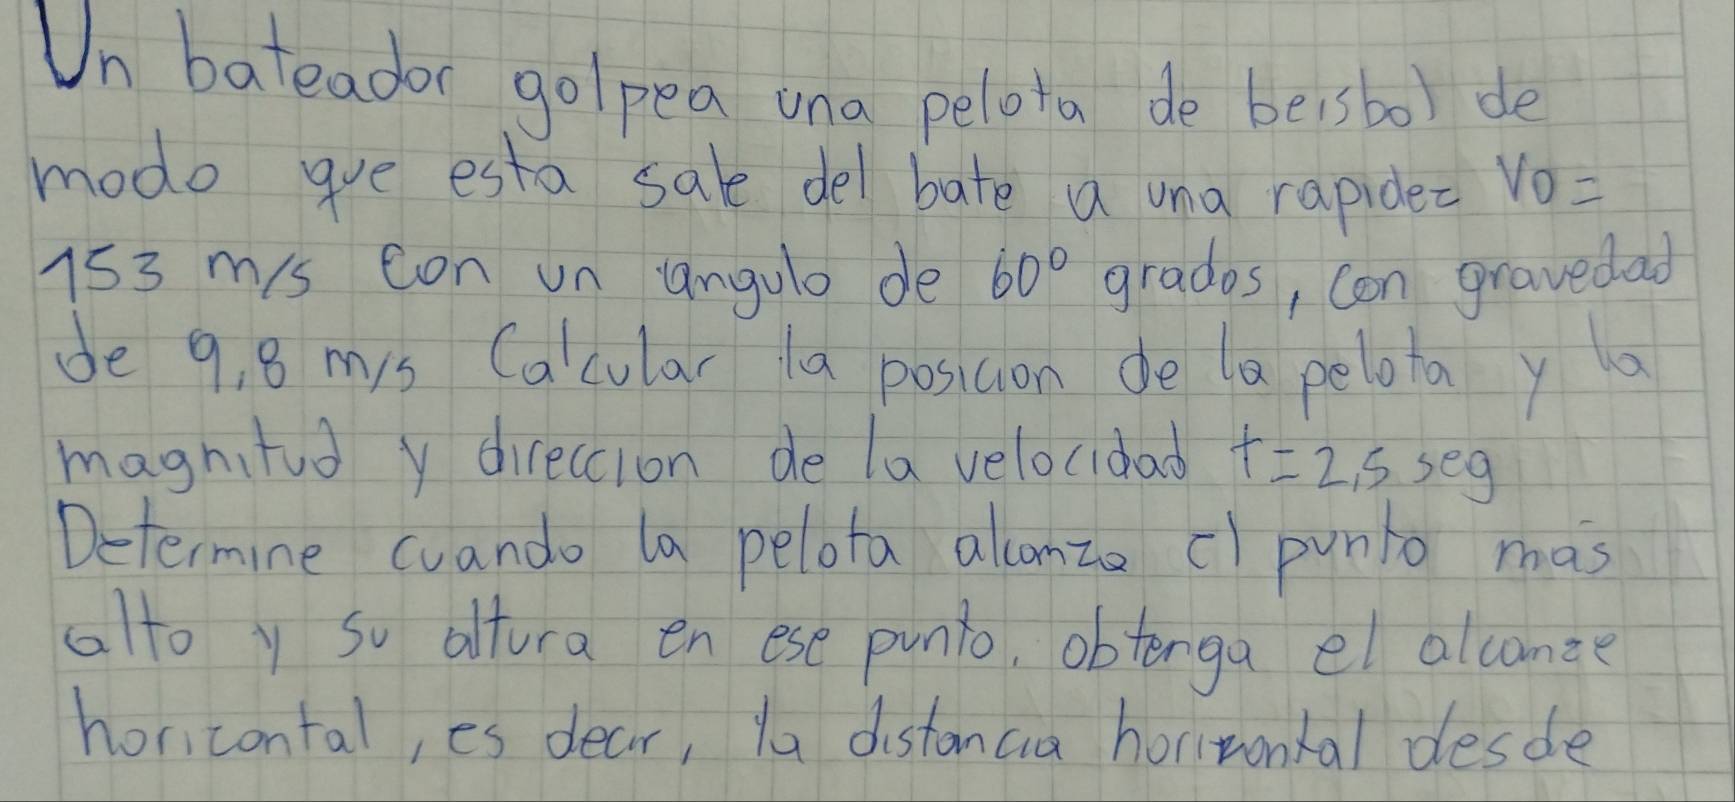 Un bateador golpea una pelota de beisbol de
modo que esta sale del bate a una rapidez Vo=
153 m/s con un angulo de 60° grados, con gravedad
de 9,8 m/s Calcular la posicion de la pelota y la
magnitud y direccion de la velocidad t=2,5 seg
Determine cuando la pelota alcanza el punto más
alto y su altura en ese punto, obtenga el alcanze
horicontal, es decir, la distancia horizontal desde